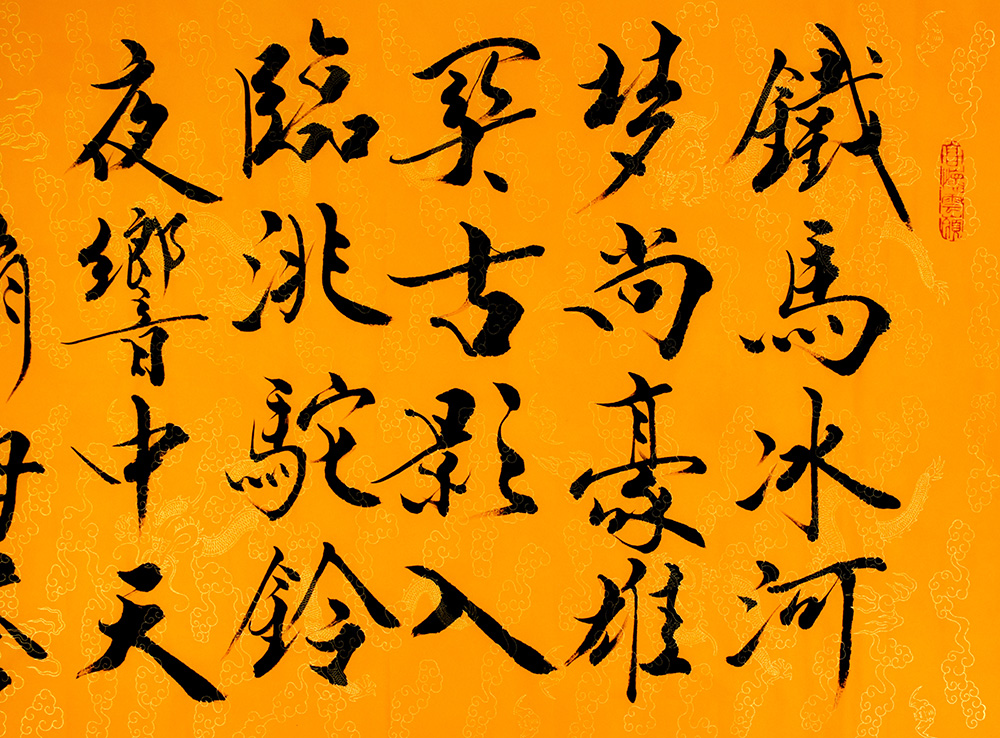 鐵馬冰河
梦尚豪雄
關古影入
臨洮駝鈴
夜響中天